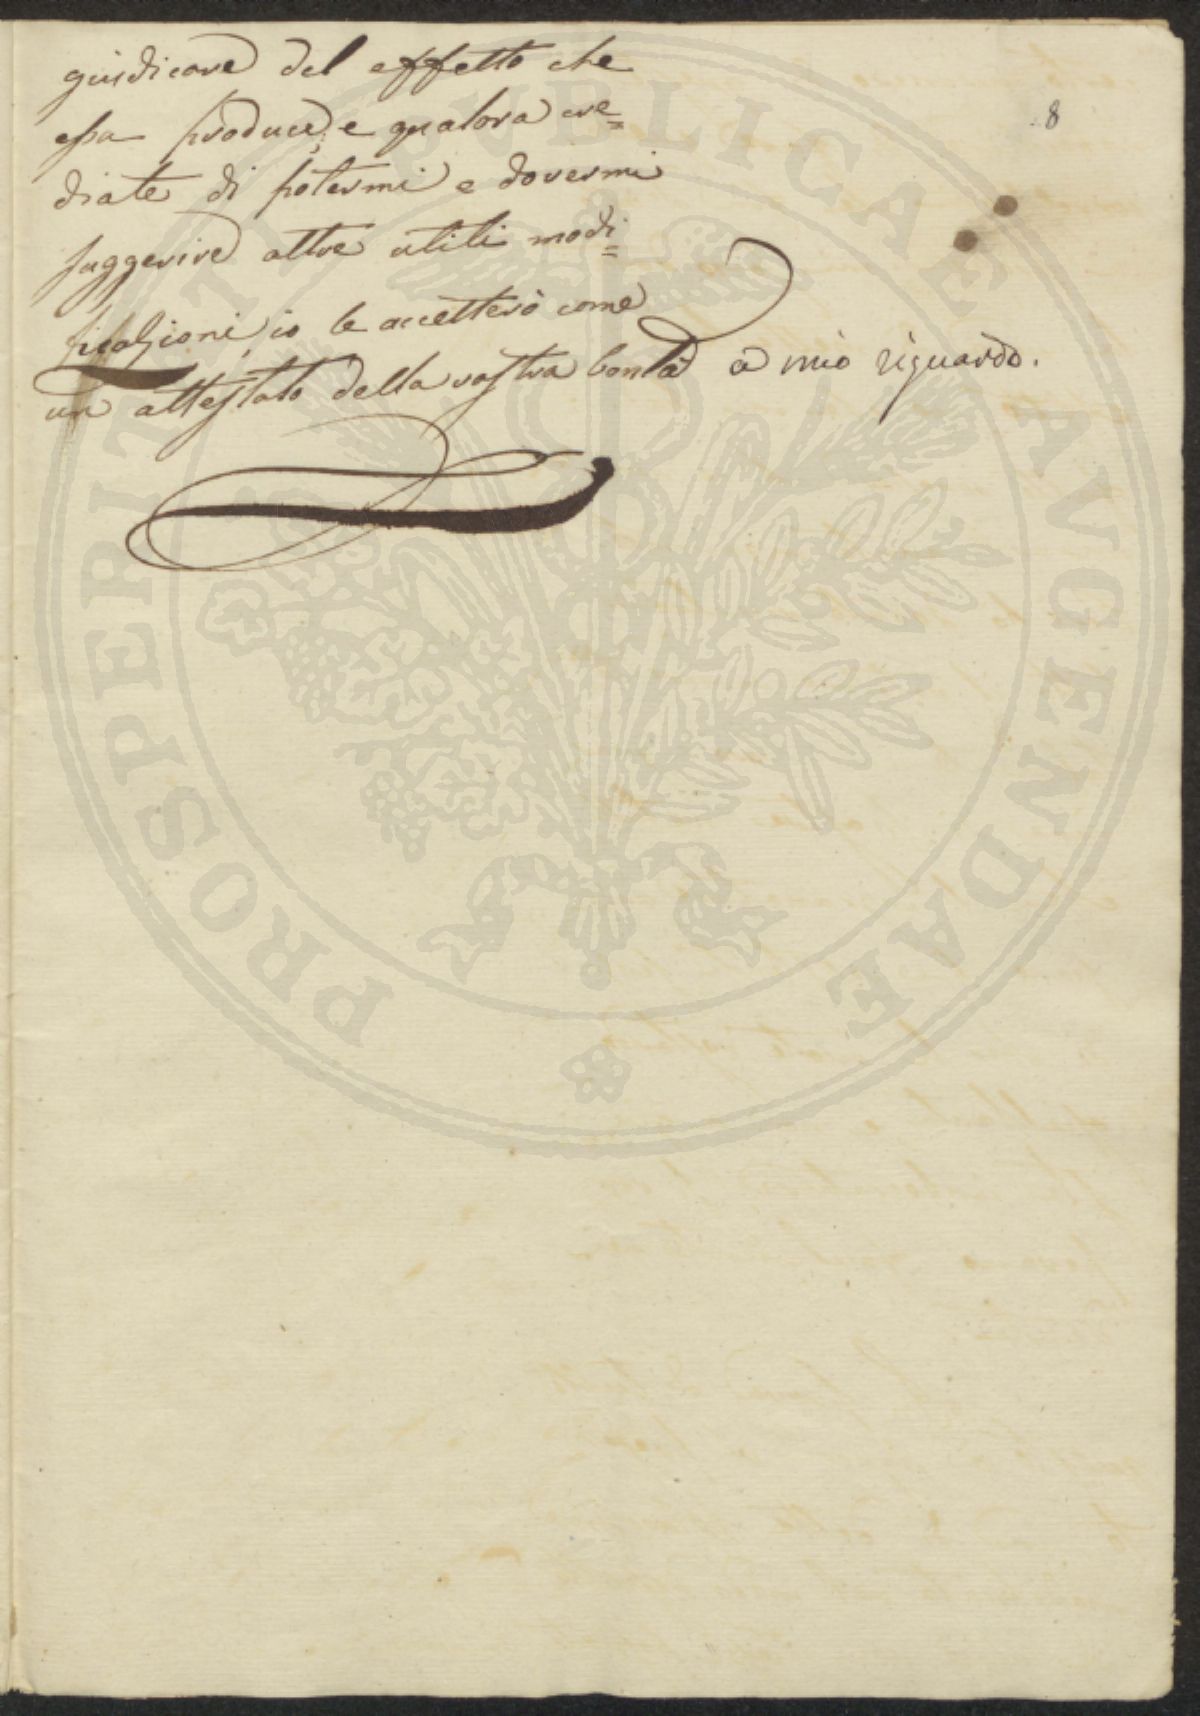 8
giudicare del effetto che
essa produce, e qualora cre=
diate di potermi e dovermi
suggerire altre utili modi=
ficazioni, io le accetterò come
un attestato della vostra bontà a mio riguardo.
PROSPERITATI PUBLICAE AVGENDAE